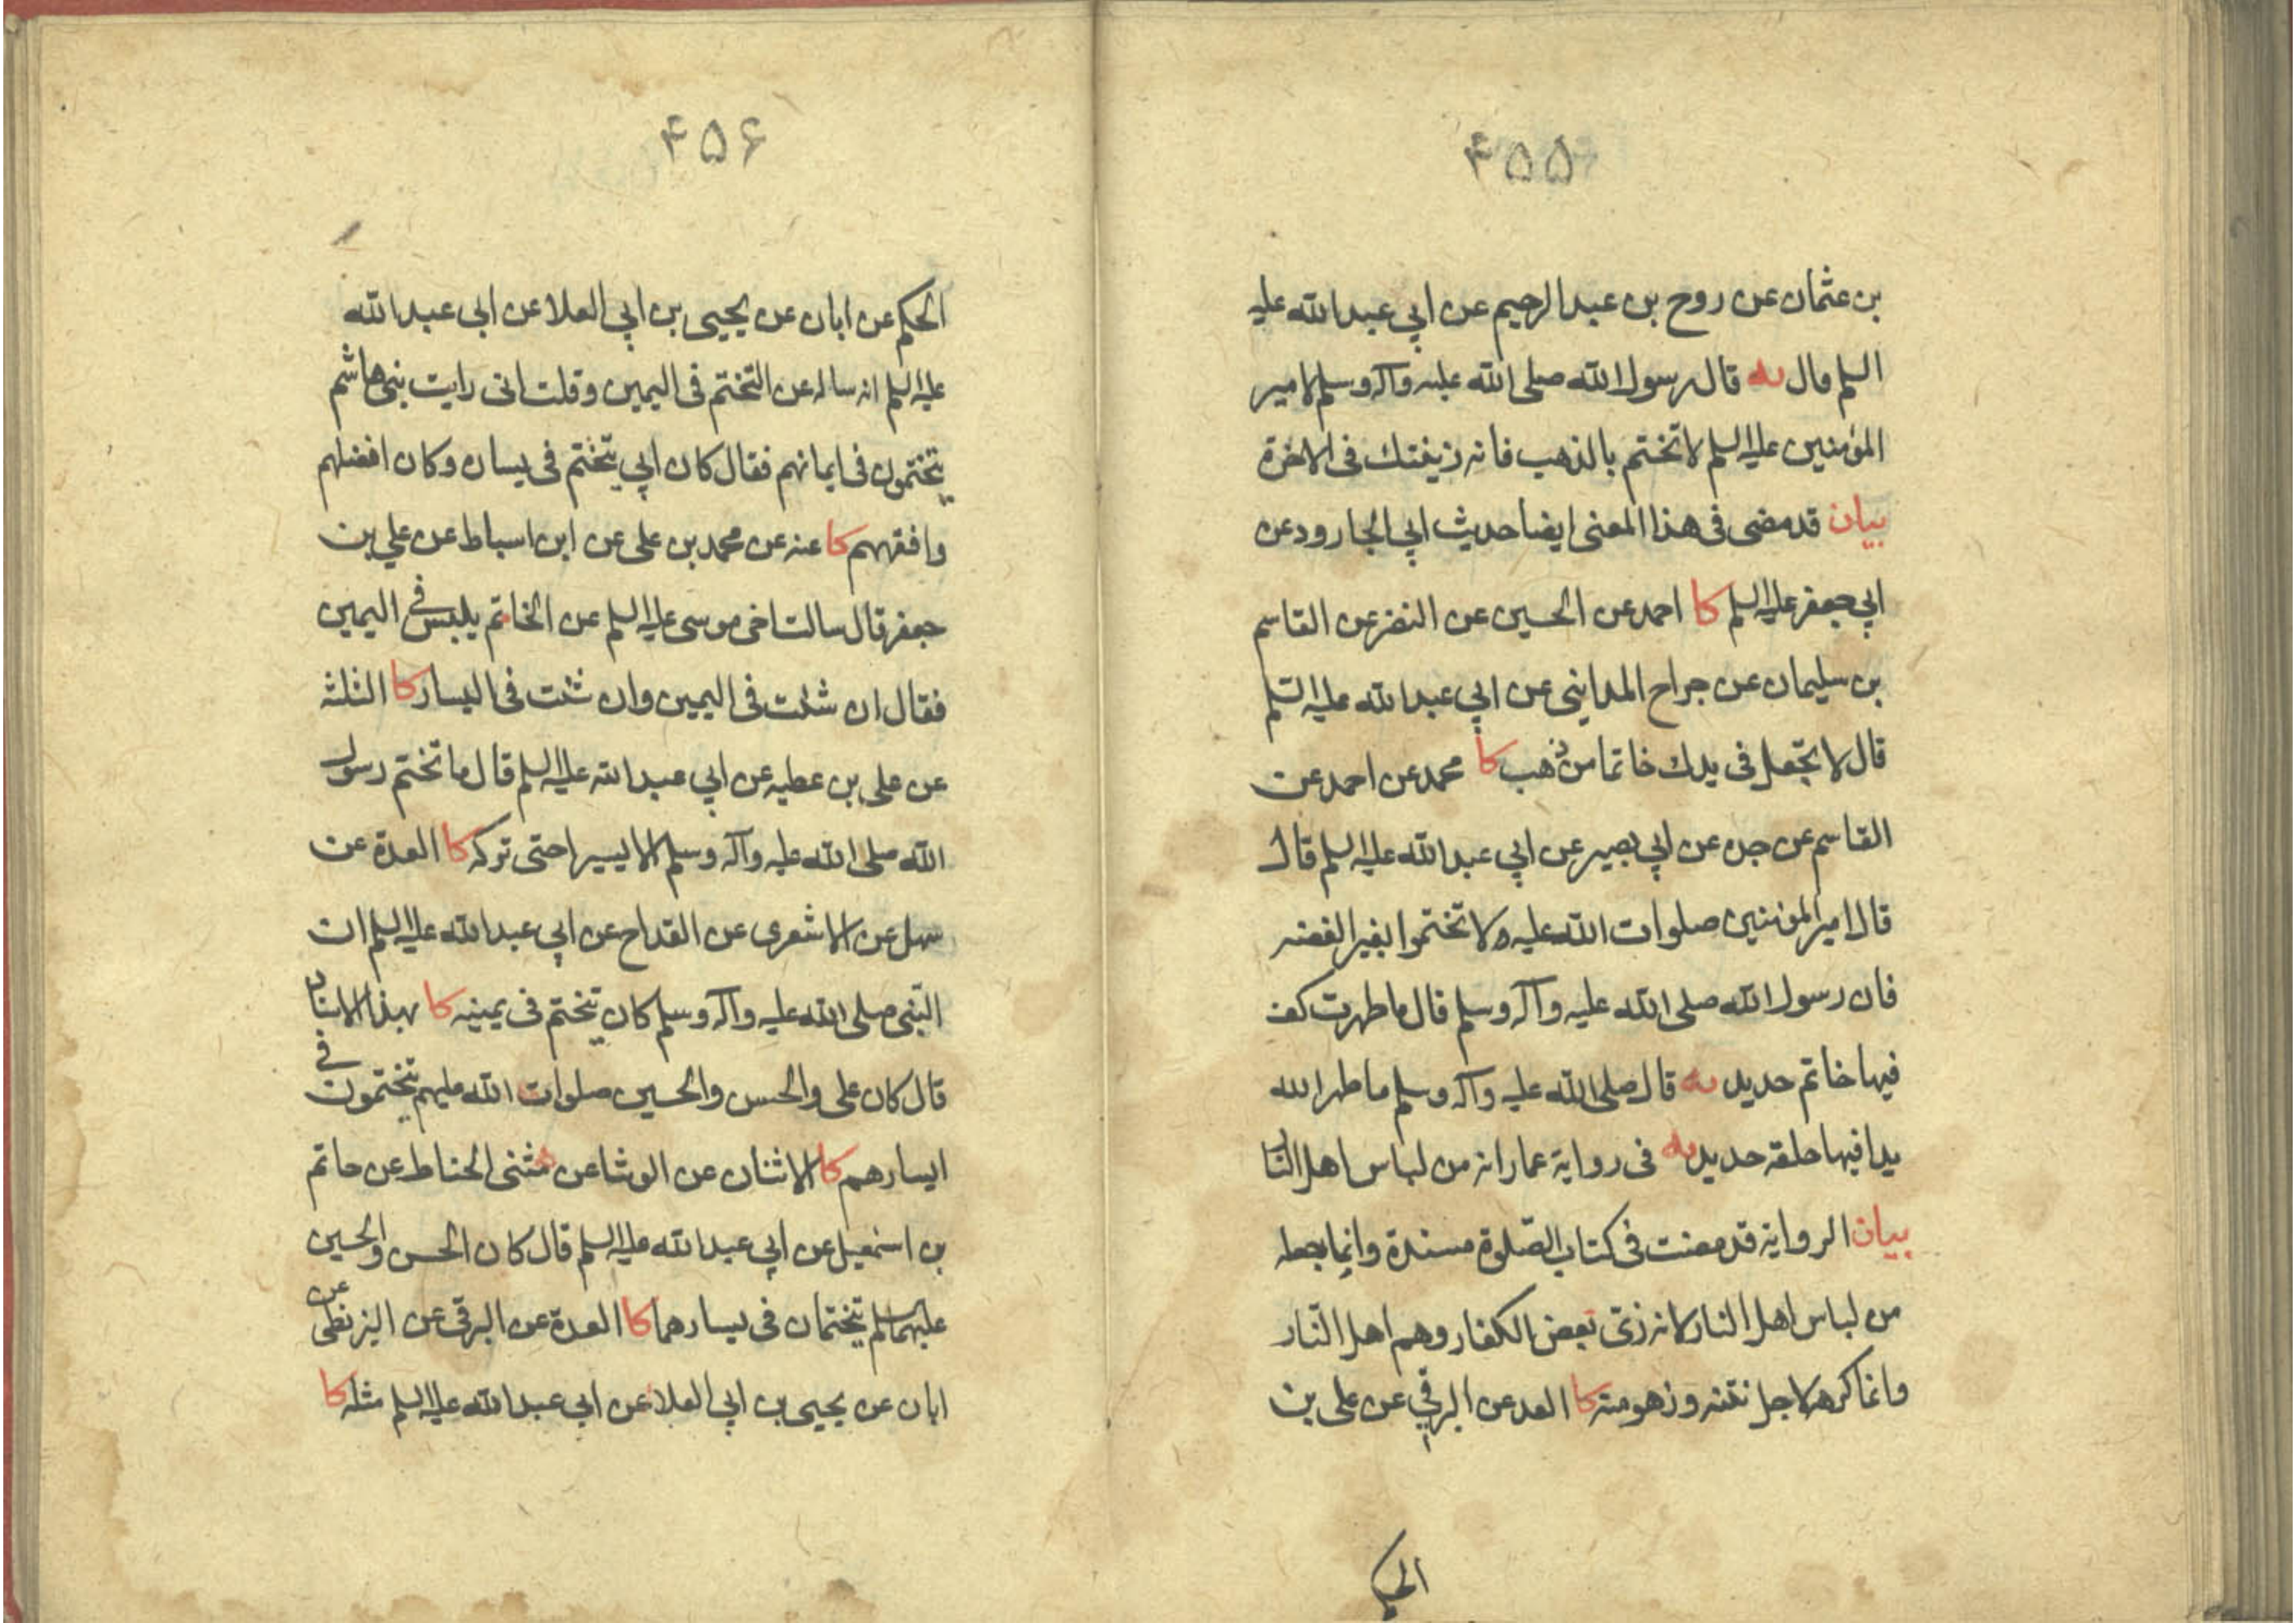 ۴۵۵
بن عثمان عن روح بن عبد الرحيم عن ابي عبد الله عليه
السلم قال يه قال رسول الله صلى الله عليه وآله وسلم لامير
المؤمنين عليه السلم لا تختم بالذهب فانه زينتك فى الاخرة
بيان قد مضى فى هذا المعنى ايضا حديث ابي الجارود عن
ابي جعفر عليه السلم كا احمد عن الحسين عن النضر عن القاسم
بن سليمان عن جراح المدايني عن ابي عبد الله عليه السلم
قال لا تجعل فى يدك خاتما من ذهب كا محمد عن احمد عن
القاسم عن جده عن ابي بصير عن ابي عبد الله عليه السلم قال
قال امير المؤمنين صلوات الله عليه ولا تختموا بغير الفضه
فان رسول الله صلى الله عليه وآله وسلم قال ما طهرت كف
فيها خاتم حديد يه قال صلى الله عليه وآله وسلم ما طهر الله
يدا فيها حلقه حديد يه فى رواية عمار انه من لباس اهل النار
بيان الرواية قد مضت فى كتاب الصلوة مسندة وانما جعله
من لباس اهل النار لانه زىّ بعض الكفار وهم اهل النار
وانما كره لاجل نتنه وزهومته كا العده عن البرقي عن على بن
الحكم
۴۵۶
الحكم عن ابان عن يحيى بن ابي العلا عن ابي عبد الله
عليه السلم انه ساله عن التختم فى اليمين وقلت انى رايت بنى هاشم
يتختمون فى ايمانهم فقال كان ابي يتختم فى يساره وكان افضلهم
وافقههم كا عنه عن محمد بن على عن ابن اسباط عن علي بن
جعفر قال سالت اخى موسى عليه السلم عن الخاتم يلبس فى اليمين
فقال ان شئت فى اليمين وان شئت فى اليسار كا الثلثه
عن على بن عطيه عن ابي عبد الله عليه السلم قال ما تختم رسول
الله صلى الله عليه وآله وسلم الا يسيرا حتى تركه كا العدة عن
سهل عن الاشعرى عن القداح عن ابي عبد الله عليه السلم ان
النبى صلى الله عليه وآله وسلم كان يتختم فى يمينه كا بهذا الاسناد
قال كان على والحسن والحسين صلوات الله عليهم يتختمون فى
ايسارهم كا الاثنان عن الوشا عن مثنى الحناط عن حاتم
بن اسمعيل عن ابي عبد الله عليه السلم قال كان الحسن والحسين
عليهما السلم يتختمان فى يسارهما كا العدة عن البرقى عن البزنطى عن
ابان عن يحيى بن ابي العلا عن ابي عبد الله عليه السلم مثله كا